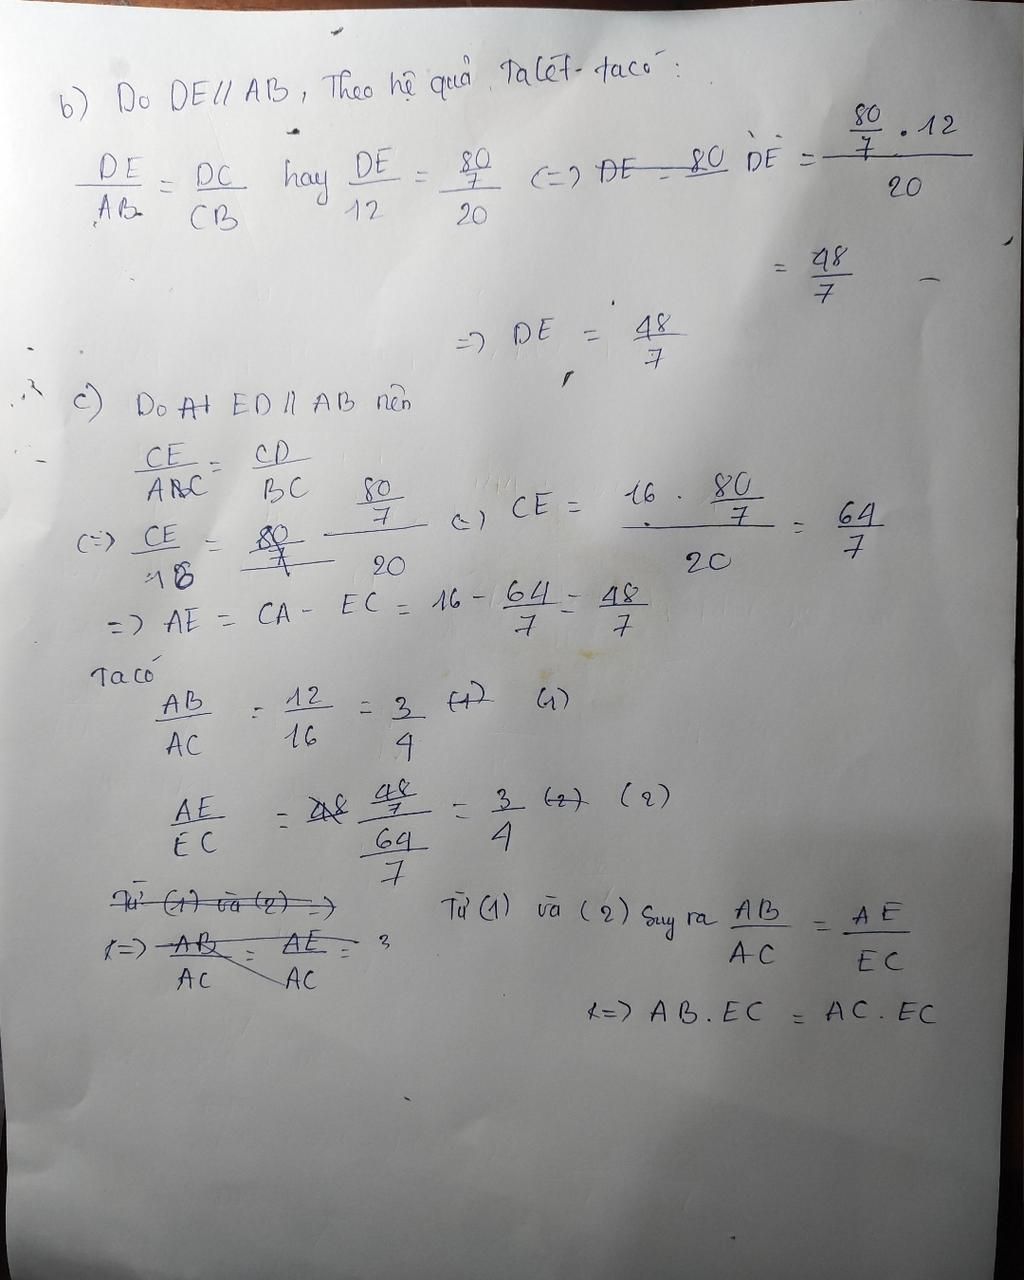 b) Do DE // AB, Theo hệ quả Talét ta có:
DE/AB = DC/CB hay DE/12 = (80/7)/20 (=) DE = 80 DE = (80/7 . 12)/20
= 48/7
=) DE = 48/7
c) Do At ED // AB nên
CE/ABC = CD/BC
(=) CE/16 = 80/7 (80/7)/20 (=) CE = (16 . 80/7)/20 = 64/7
=) AE = CA - EC = 16 - 64/7 = 48/7
Ta có
AB/AC = 12/16 = 3/4 (1) (1)
AE/EC = 48 (48/7)/(64/7) = 3/4 (2) (2)
Từ (1) và (2) =) Từ (1) và (2) Suy ra AB/AC = AE/EC
(=) AB/AC = AE/AC = 3
(=) AB . EC = AC . EC